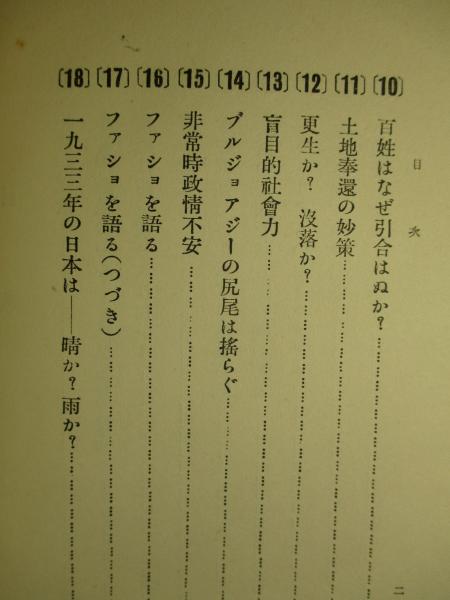 目次
〔10〕百姓はなぜ引合はぬか?
〔11〕土地奉還の妙策
〔12〕更生か?沒落か?
〔13〕盲目的社會力
〔14〕ブルジョアジーの尻尾は搖らぐ
〔15〕非常時政情不安
〔16〕ファショを語る
〔17〕ファショを語る(つづき)
〔18〕一九三三年の日本は――晴か?雨か?
二